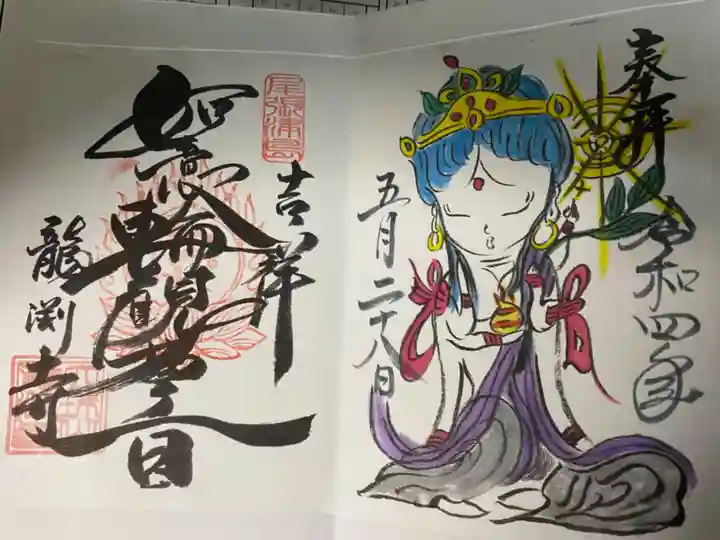 奉拝
令和四年
五月二十八日
尾張津島
吉祥
如意輪観世音
龍渕寺